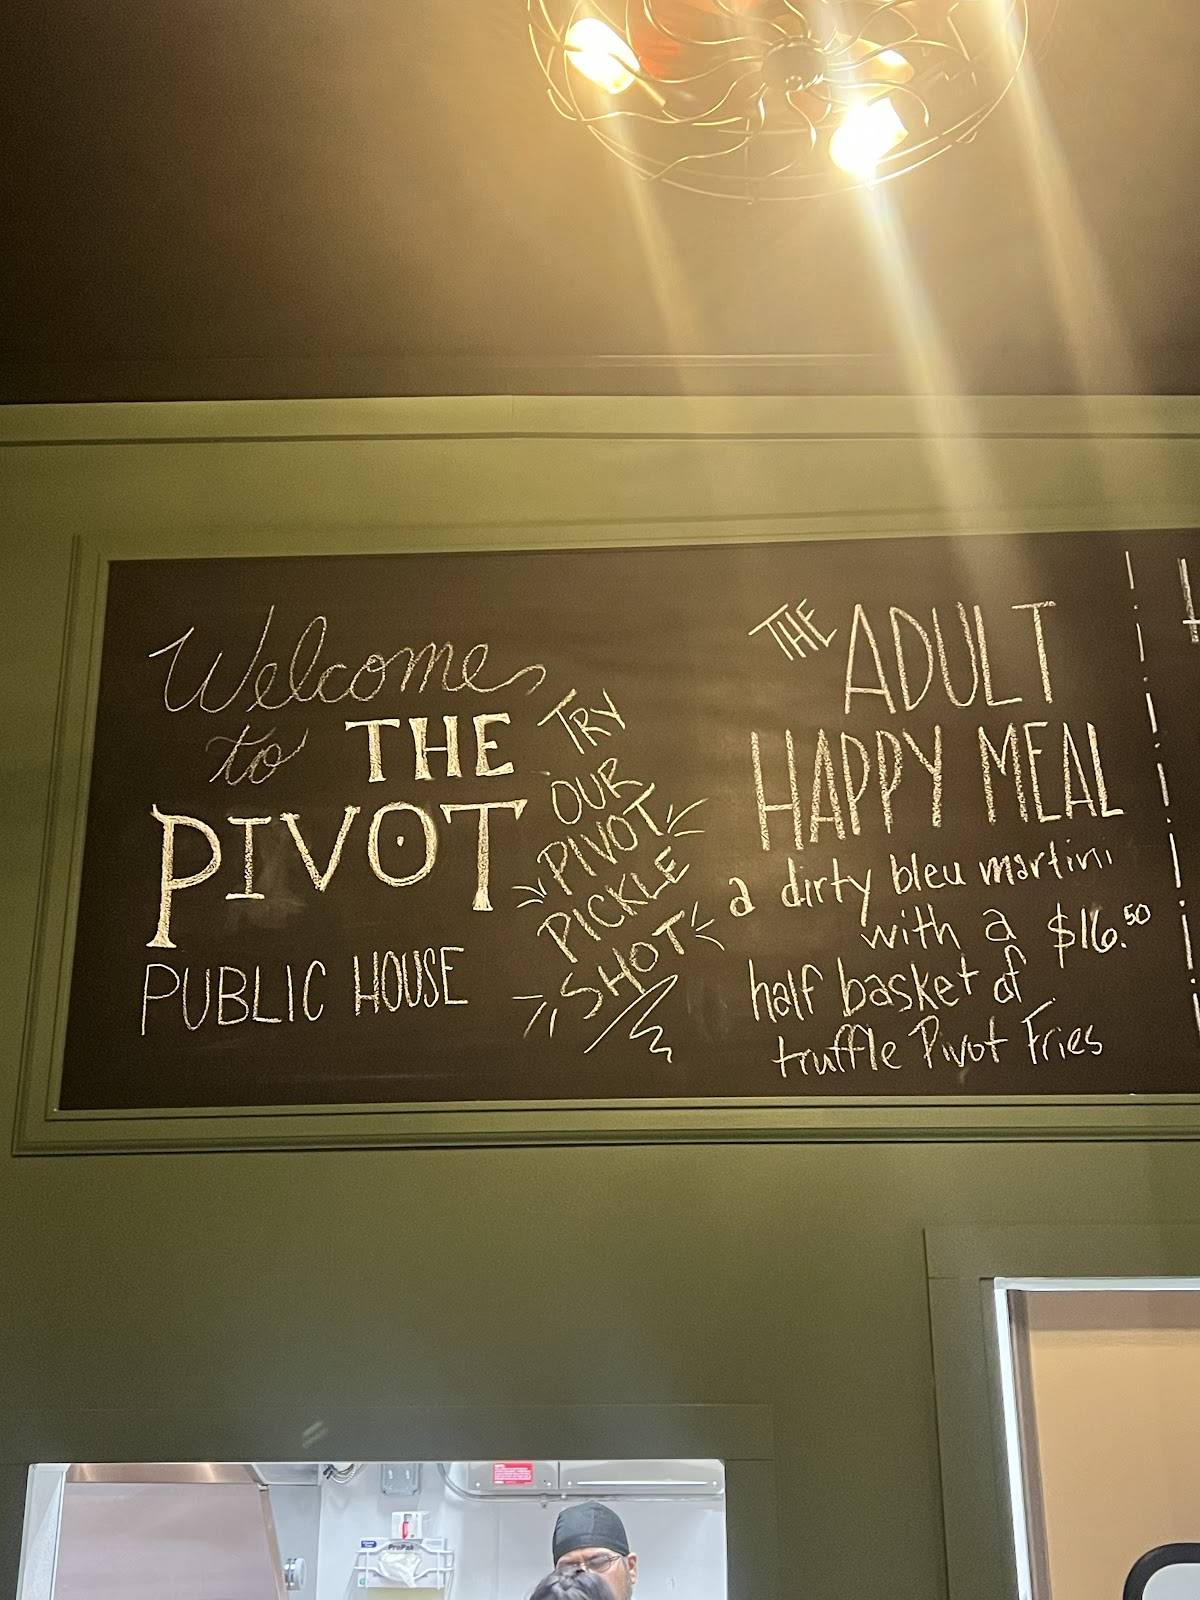 Welcome
to THE
PIVOT
PUBLIC HOUSE
TRY
OUR
PIVOT
PICKLE
SHOT
THE ADULT
HAPPY MEAL
a dirty bleu martini
with a $16.50
half basket of
truffle Pivot Fries
ProPak